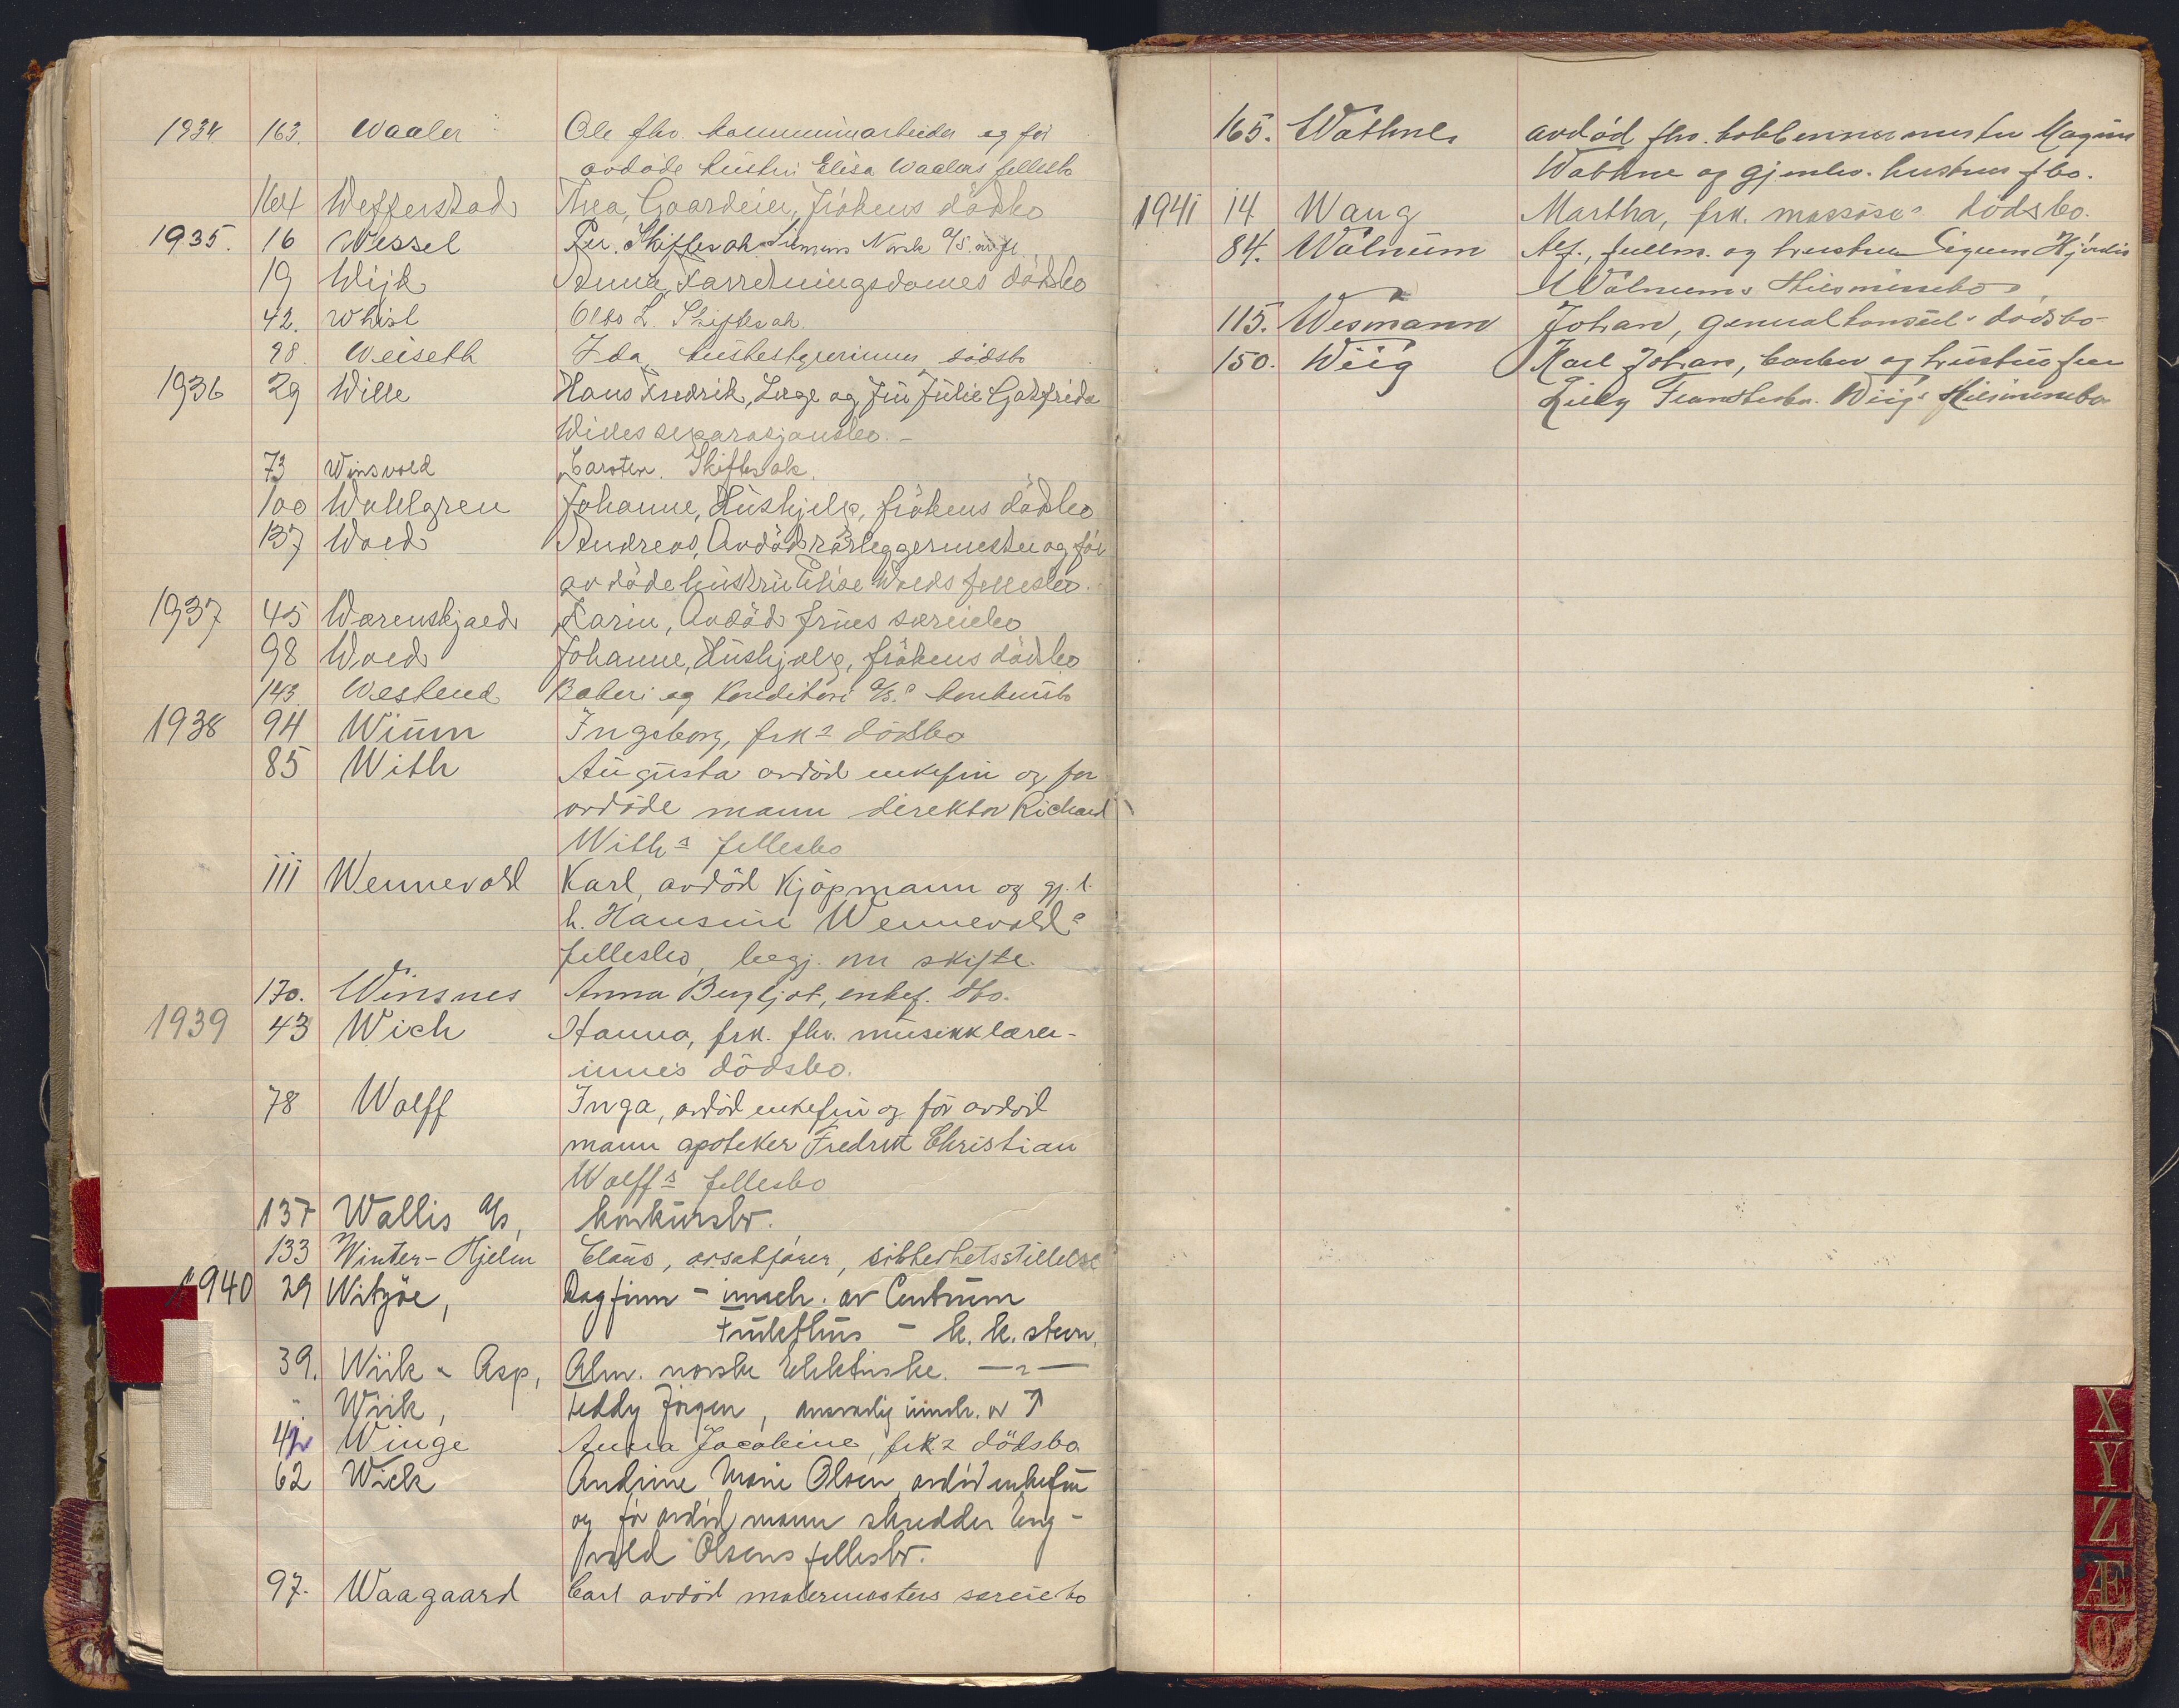 1934 163. Waaler Ole fhv. kommunearbeider og før
avdøde hustru Elisa Waalers fellesbo
164 Wefferstad Thea, Gaardeier, frökens dödsbo
1935. 16 Wessel Per. Skiftesak Siemens Norsk A/S.
19 Wijk Anna, Forretningsdames dödsbo
42. Whist Otto L. Skiftesak.
98. Weiseth Ida, husbestyrerinnes dödsbo
1936 29 Wille Hans Fredrik, Lege og fru Julie Gotfrida
Willes separasjonsbo.-
73 Winsvold Carsten. Skiftesak.
100 Wahlgren Johanne, Hushjelp, frökens dödsbo
137 Wold Andreas, Avdöd rörleggermester og før
avdøde hustru Wolds fellesbo.
1937 45 Warenskjold Karin, Avdöd frues særeiebo
98 Wold Johanne, Hushjelp, frökens dödsbo
143 Westend Bakeri og Konditori A/S.s konkursbo
1938 94 Wium Ingeborg, frk.s dödsbo
85 With Augusta avdöd enkefru og før
avdöde mann direktør Richard
With's fellesbo
111 Wennevold Karl, avdöd Kjöpmann og gj. l.
h. Hansine Wennevold's
fellesbo, begj. om skifte.
170. Winsnes Anna Bergljot, enkef. dbo.
1939 43 Wich Hanna, frk. fhv. musikklærer-
innes dödsbo.
78 Wolff Inga, avdöd enkefru og för avdöd
mann apoteker Fredrik Christian
Wolff's fellesbo
137 Wallis A/S, konkursbo.
133 Winter-Hjelm Claus, o.r.sakfører, sikkerhetsstillelse
1940 29 Witzøe, Dagfinn - inneh. av Centrum
Frukthus - k. k. stevn.
39. Wiik & Asp, Alm. norske Elektriske. —"—
". Wiik, Teddy Jörgen, ansvarlig inneh. av ↑
42 Winge Anna Jacobine, frk.s dödsbo
62 Wick Andrine Marie Olsen, avdöd enkefru
og før avdöd mann skredder Eng-
vald Olsens fellesbo.
97. Waagaard Carl avdöd malermesters særeiebo
165. Wathne avdød fhv. mester Magnus
Wathne og gjenlev. hustrus fbo.
1941 14 Wang Martha, frk. massøses dødsbo.
84. Walnum Alf., fullm. og hustru Sigrun Hjördis
Walnums skilsmissebo
115. Wesmann Johan, generalkonsuls dødsbo
150. Wiig Karl Johan, barber og hustru fru
Lilly Wiig's skilsmissebo
X
Y
Z
Æ
Ø